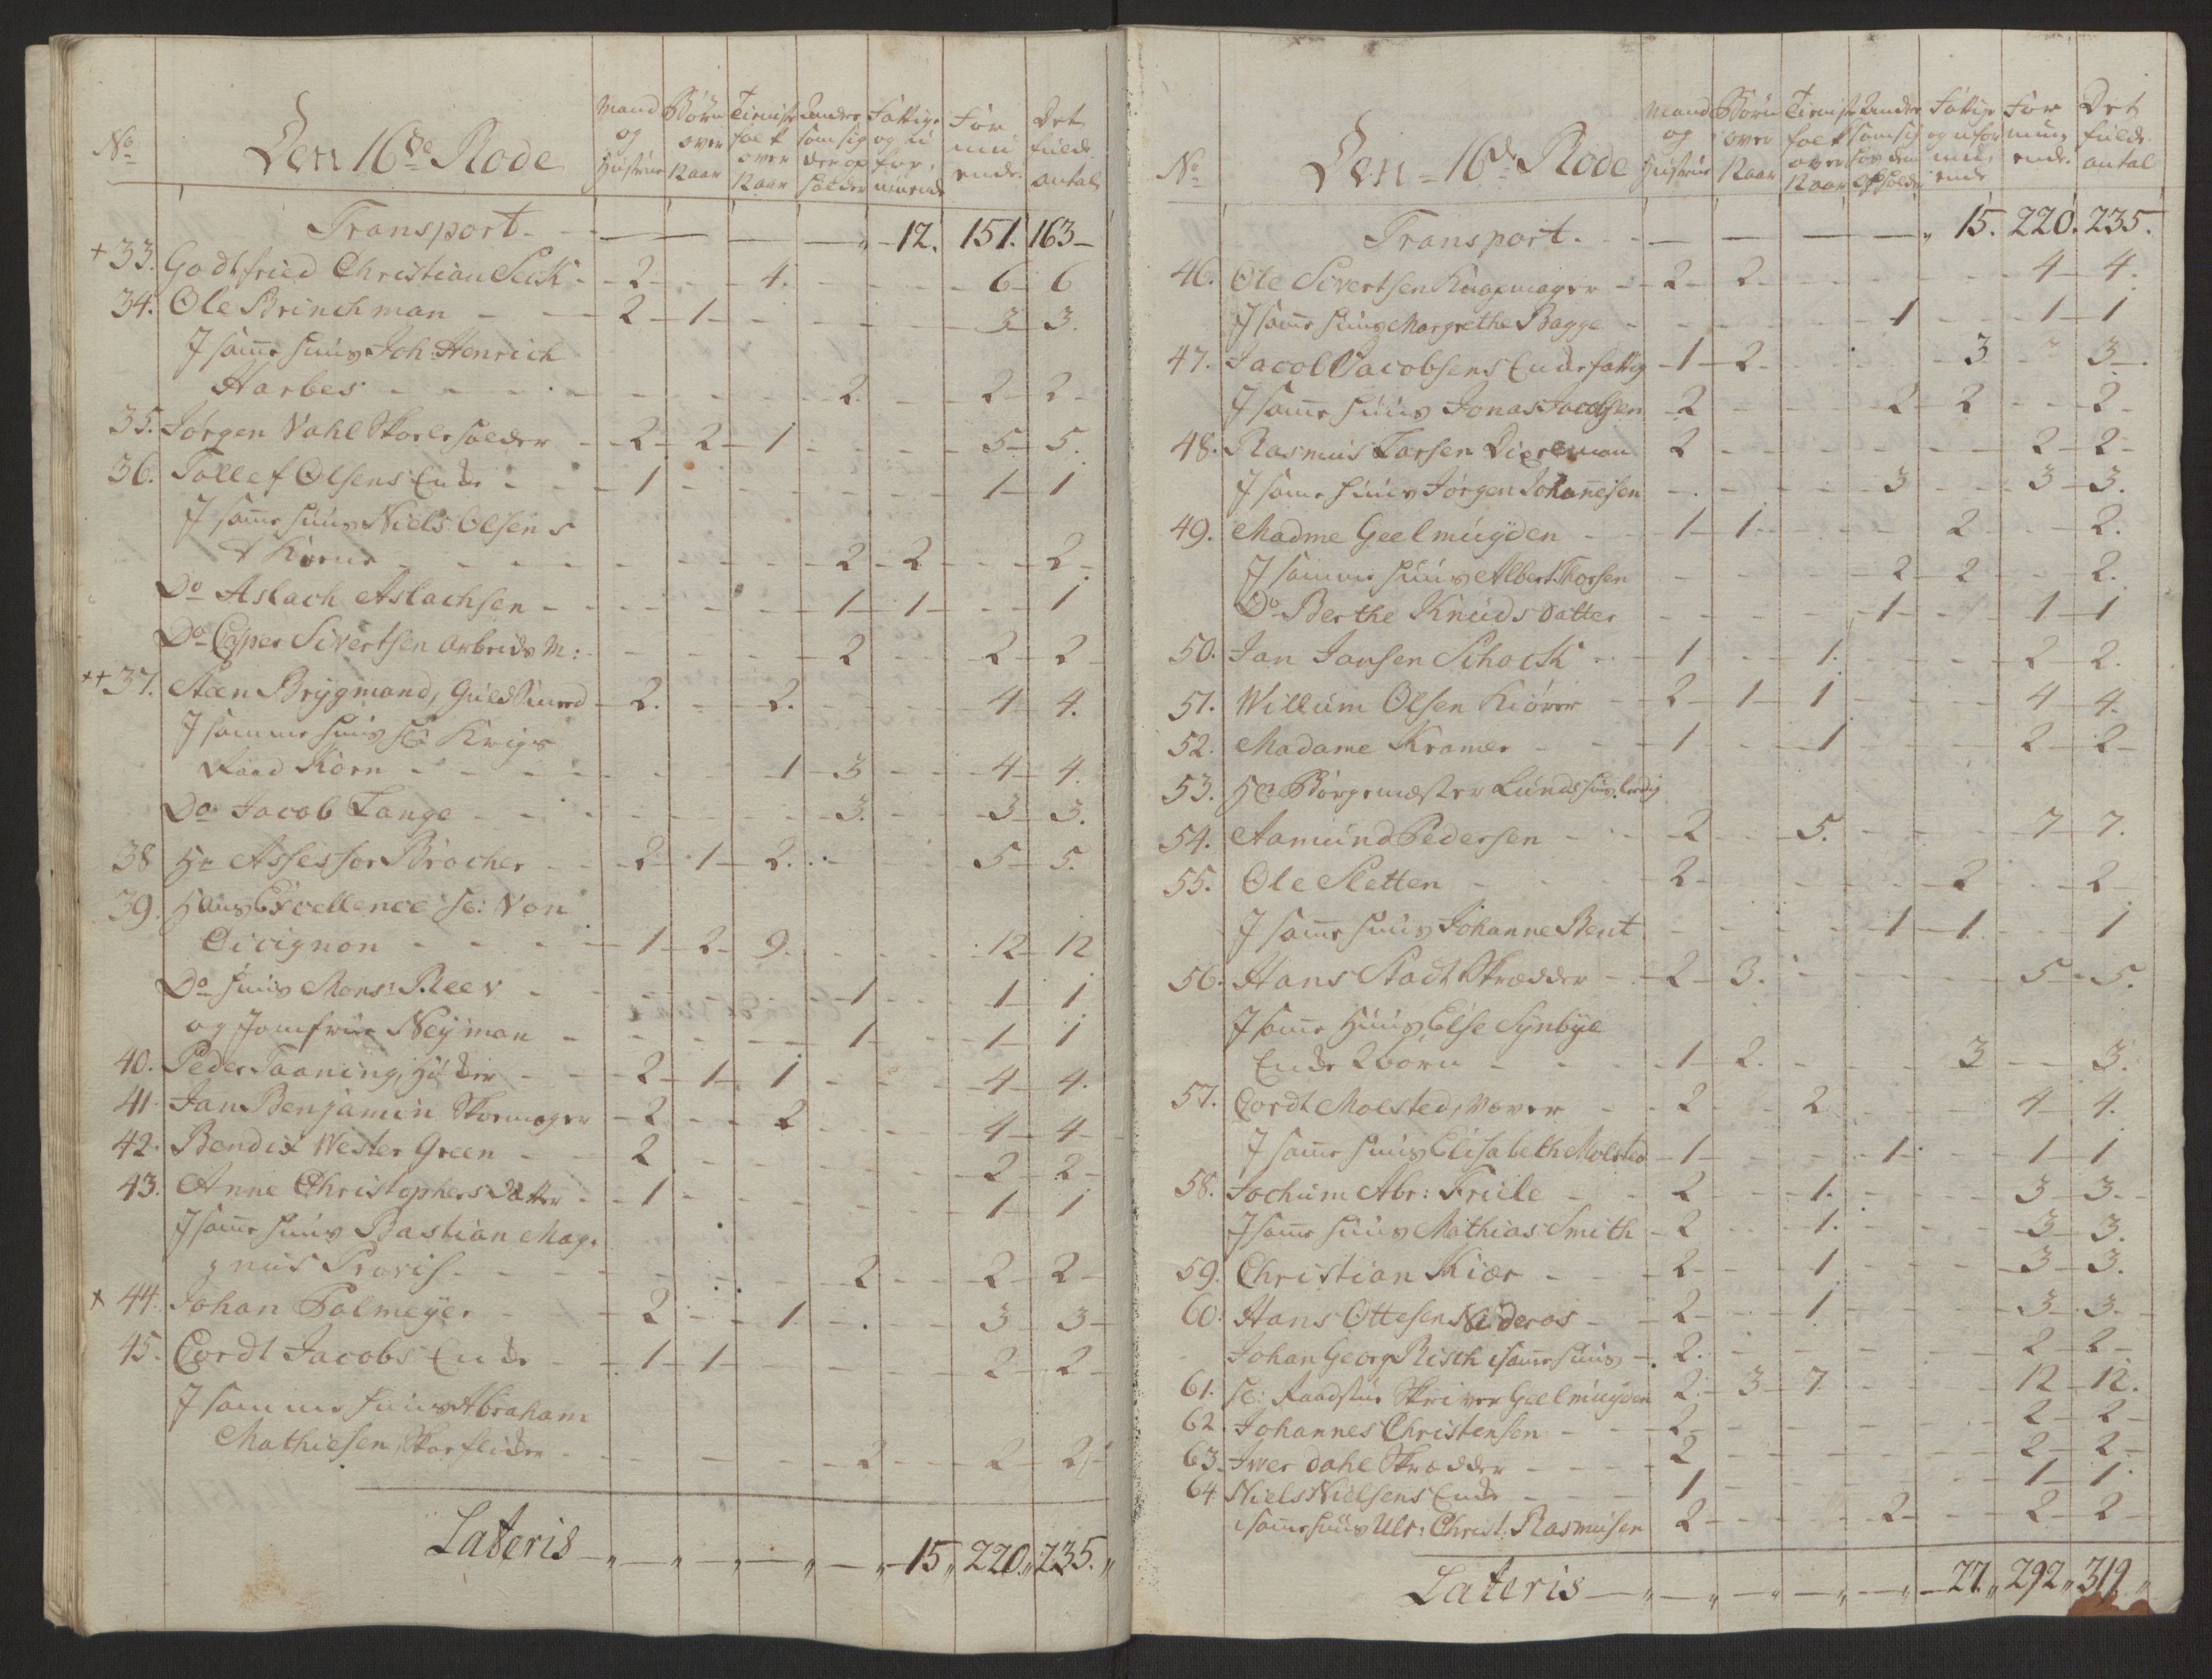 No
Den 16de Rode
Mand og Hustrue
Børn over 12 Aar
Tieniste folk over 12 Aar
Andre som sig der op holder
Fattige og u for muende
For mu ende
Det fulde antal
Transport - 12. 151. 163
+ 33. Godtfried Christian Seik - 2 - 4. - 6 - 6
34. Ole Brinchman - 2 - 1 - 3 - 3.
J same Huus Joh: Henrich
Harbes - 2 - 2 - 2
35. Jørgen Vahl Skoeleholder - 2 - 2 - 1 - 5 - 5.
36. Tollef Olsens Enke - 1 - 1 - 1
J same Huus Niels Olsens
- 2 - 2 - 2
Do Aslach Aslachsen - 1 - 1 - 1
Do Casper Sivertsen Arbeids M: - 2 - 2 - 2
++ 37. Aren Brygmand, Guldsmed - 2. - 2. - 4 - 4.
J samme Huus Sl: Krigs
Raad Korn - 1 - 3 - 4 - 4.
Do Jacob Lange - 3. - 3 - 3.
38 Hr Assessor Brocher - 2 - 1 - 2. - 5 - 5.
39. Hans Excellence Sl: Von
Cicignon - 1 - 2 - 9. - 12 - 12
Do Huus Mons: Reev - 1 - 1 - 1
og Jomfrue Neyman - 1 - 1 - 1
40. Peder Taaning, - 2 - 1 - 1 - 4 - 4.
41. Jan Benjamin Skoemager - 2 - 2 - 4 - 4 -
42. Bendix Wester Green - 2 - 2 - 2 -
43. Anne Christophers Datter - 1 - 1 - 1
J same Huus Bastian Mag-
gnus Provis - 2 - 2 - 2 -
+ 44. Johan Falmeyer - 2 - 1 - 3 - 3 -
45. Cordt Jacobs Enke - 1 - 1 - 2 - 2 -
J samme Huus Abraham
Mathiesen, Skoeflikker - 2 - 2 - 2
Lateris - 15 " 220 " 235. "
No
Den 16de Rode
Mand og Hustrue
Børn over 12 Aar
Tieniste folk over 12 Aar
Andre som sig hos dem opholder
Fattige og ufor mu ende
For mu ende.
Det fulde antal
Transport. - 15. 220. 235.
46. Ole Sivertsen Knapmager - 2 - 2 - 4 - 4.
J same Huus Margrethe Bagge - 1 - 1 - 1
47. Jacob Jacobsens Enke fattig - 1 - 2 - 3 - 3 -
J same Huus Jonas Jacobsen - 2 - 2 - 2 - 2 -
48. Rasmus Larsen - 2 - 2 - 2 -
J same Huus Jørgen Johanesen - 3 - 3 - 3.
49. Madme Geelmuyden - 1 - 1 - 2 - 2.
J samme Huus Albert Thorsen - 2 - 2 - 2.
Do Berthe Knuds Datter - 1 - 1 - 1
50. Jan Jansen Schock - 1 - 1. - 2 - 2.
51. Willum Olsen Kiører - 2 - 1 - 1 - 4 - 4.
52. Madame Kramer - 1 - 1 - 2 - 2 -
53. Hr Borgemester Lunds Huus, ledig
54. Aamund Pedersen - 2 - 5. - 7 - 7.
55. Ole Sletten - 2 - 2 - 2 -
J same Huus Johanne Bent - 1 - 1 - 1
56. Hans Stadt Skrædder - 2 - 3. - 5 - 5.
J same Huus Else Synbye
Enke 2 børn - 1 - 2. - 3 - 3.
57. Cordt Molsted, Væver - 2 - 2 - 4 - 4.
J same Huus Elisabeth Molsted - 1 - 1 - 1 - 1
58. Jochum Abr: Friele - 2 - 1. - 3 - 3. -
J same Huus Mathias Smith - 2 - 1. - 3 - 3.
59. Christian Kiær - 2 - 1 - 3 - 3.
60. Hans Ottesen Nideros - 2 - 1 - 3 - 3. -
Johan Georg Risch i same Huus - 2. - 2 - 2 -
61. Sl: Raadstue Skriver Geelmuyden 2. - 3 - 7. - 12 - 12.
62. Johannes Christensen - 2 - 2 - 2 -
63. Jver Dahl Skrædder - 2 - 2 - 2 -
64. Niels Nielsens Enke - 1 - 1 - 1.
i same Huus Ulr: Christ: Rasmusen 2 - 2 - 2 - 2 -
Lateris - 27 " 292 " 319 "